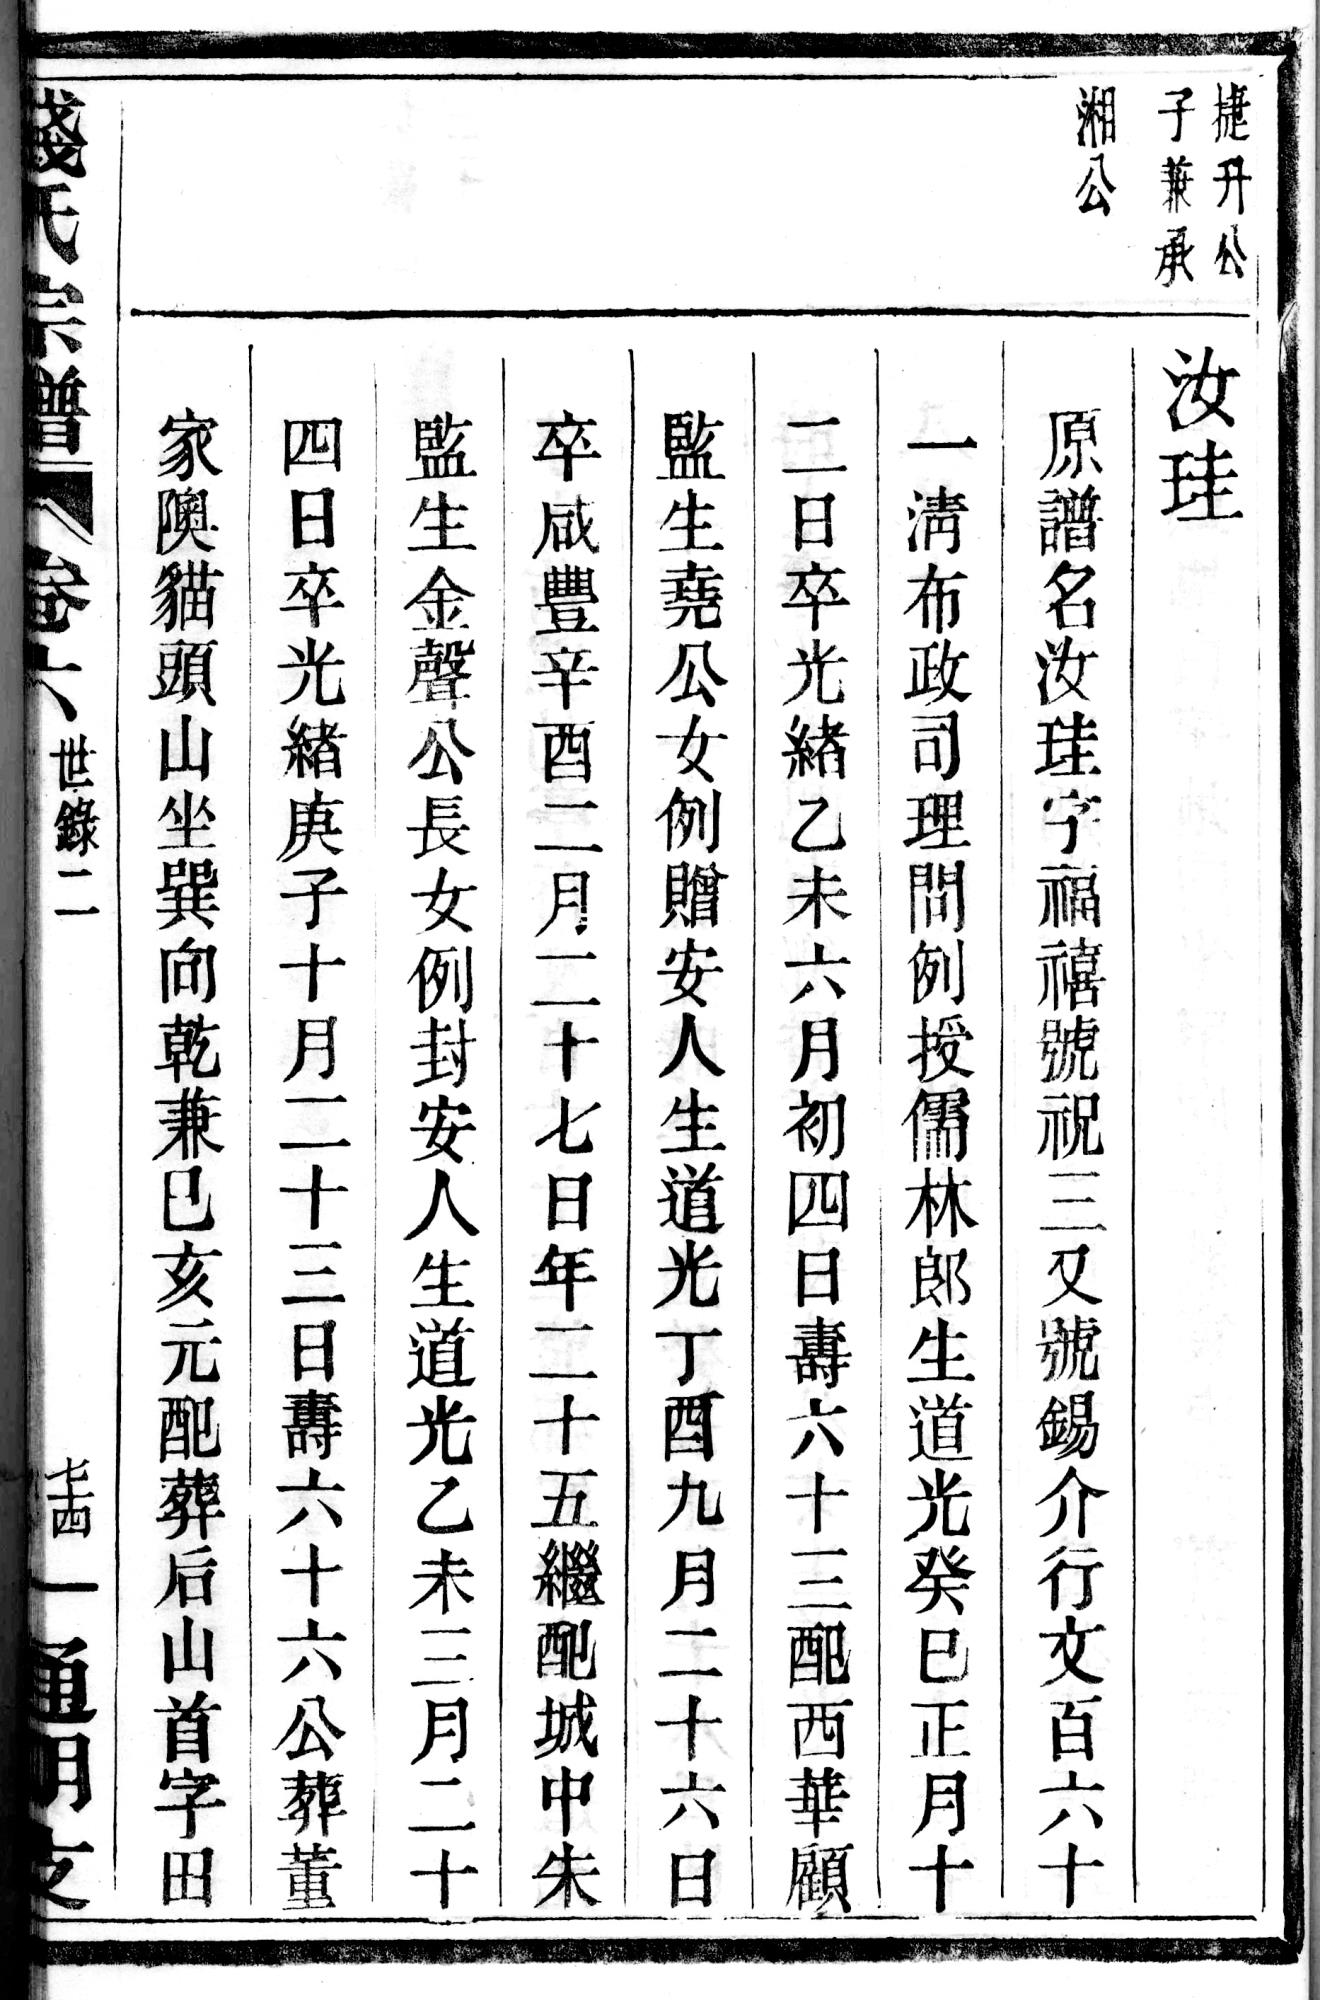 捷升公
子兼承
湘公
汝珪
原譜名汝珪字福禧號祝三又號錫介行文百六十
一淸布政司理問例授儒林郎生道光癸巳正月十
二日卒光緒乙未六月初四日壽六十三配西華顧
監生堯公女例贈安人生道光丁酉九月二十六日
卒咸豐辛酉二月二十七日年二十五繼配城中朱
監生金聲公長女例封安人生道光乙未三月二十
四日卒光緒庚子十月二十三日壽六十六公葬董
家隩貓頭山坐巽向乾兼巳亥元配葬后山首字田
錢氏宗譜 卷六 世錄二 七十四 通明支